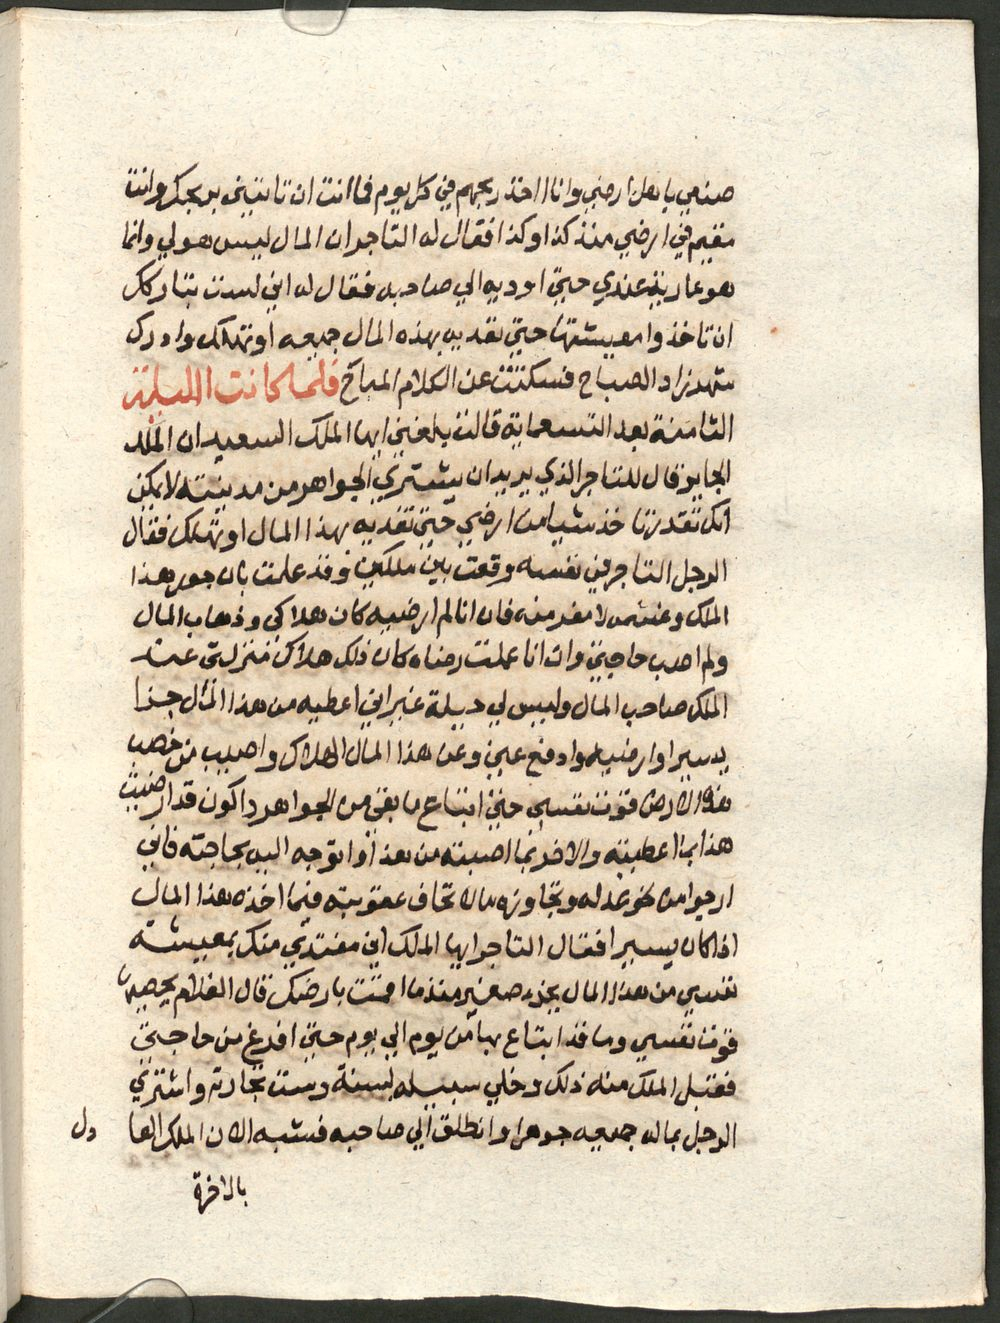 صنعي يا هل ارضي وانا اخذ ربحهم في كل يوم فما انت ان تاتيني بربحك وانت
مقيم في ارضي منذ كذا وكذا فقال له التاجر ان المال ليس هو لي وانما
هو عارية عندي حتي اوديه الي صاحبه فقال له اني لست بتاركك
ان تاخذ وا معيشتها حتي تفديه بهذه المال جميعه او تهلك وادرك
شهرزاد الصباح فسكتت عن الكلام المباح فلما كانت الليلة
الثامنة بعد التسعماية قالت بلغني ايها الملك السعيد ان الملك
الجاير قال للتاجر الذي يريد ان يشتري الجواهر من مدينته لا يمكن
انك تقدر تاخذ شيا من ارضي حتي تفديه بهذا المال او تهلك فقال
الرجل التاجر في نفسه وقعت بين ملكين وقد علمت بان جور هذا
الملك وغشه لا مفر منه فان انا لم ارضيه كان هلاكي وذهاب المال
ولم اصب حاجتي وان انا عملت رضاه كان ذلك هلاك منزلتي عند
الملك صاحب المال وليس لي حيلة غير اني اعطيه من هذا المال جذا
يسيرا وارضيه وادفع عني وعن هذا المال الهلاك واصيب من خصب
هذه الارض قوت نفسي حتي ابتاع ما بقي من الجواهر واكون قد ارضيت
هذا بما اعطيته والاخر بما اصبته من بعد او اتوجه اليه بحاجته فاني
ارجوا من نحو عدله وتجاوزه ما لا تخاف عقوبته فيما اخذه هذا المال
اذا كان يسيرا فقال التاجر ايها الملك اني مفتدي منك بمعيشة
نفسي من هذا المال بجذء صغير منذ ما اقمت بارضك قال الغلام يخصهما
قوت نفسي وما قد ابتاع بها من يوم الي يوم حتي افرغ من حاجتي
فقبل الملك منه ذلك وخلي سبيله لسنة دست تجارته واشتري
الرجل بماله جميعه جوهرا وانطلق الي صاحبه فشبه الان الملك العا دل
بالاخرة